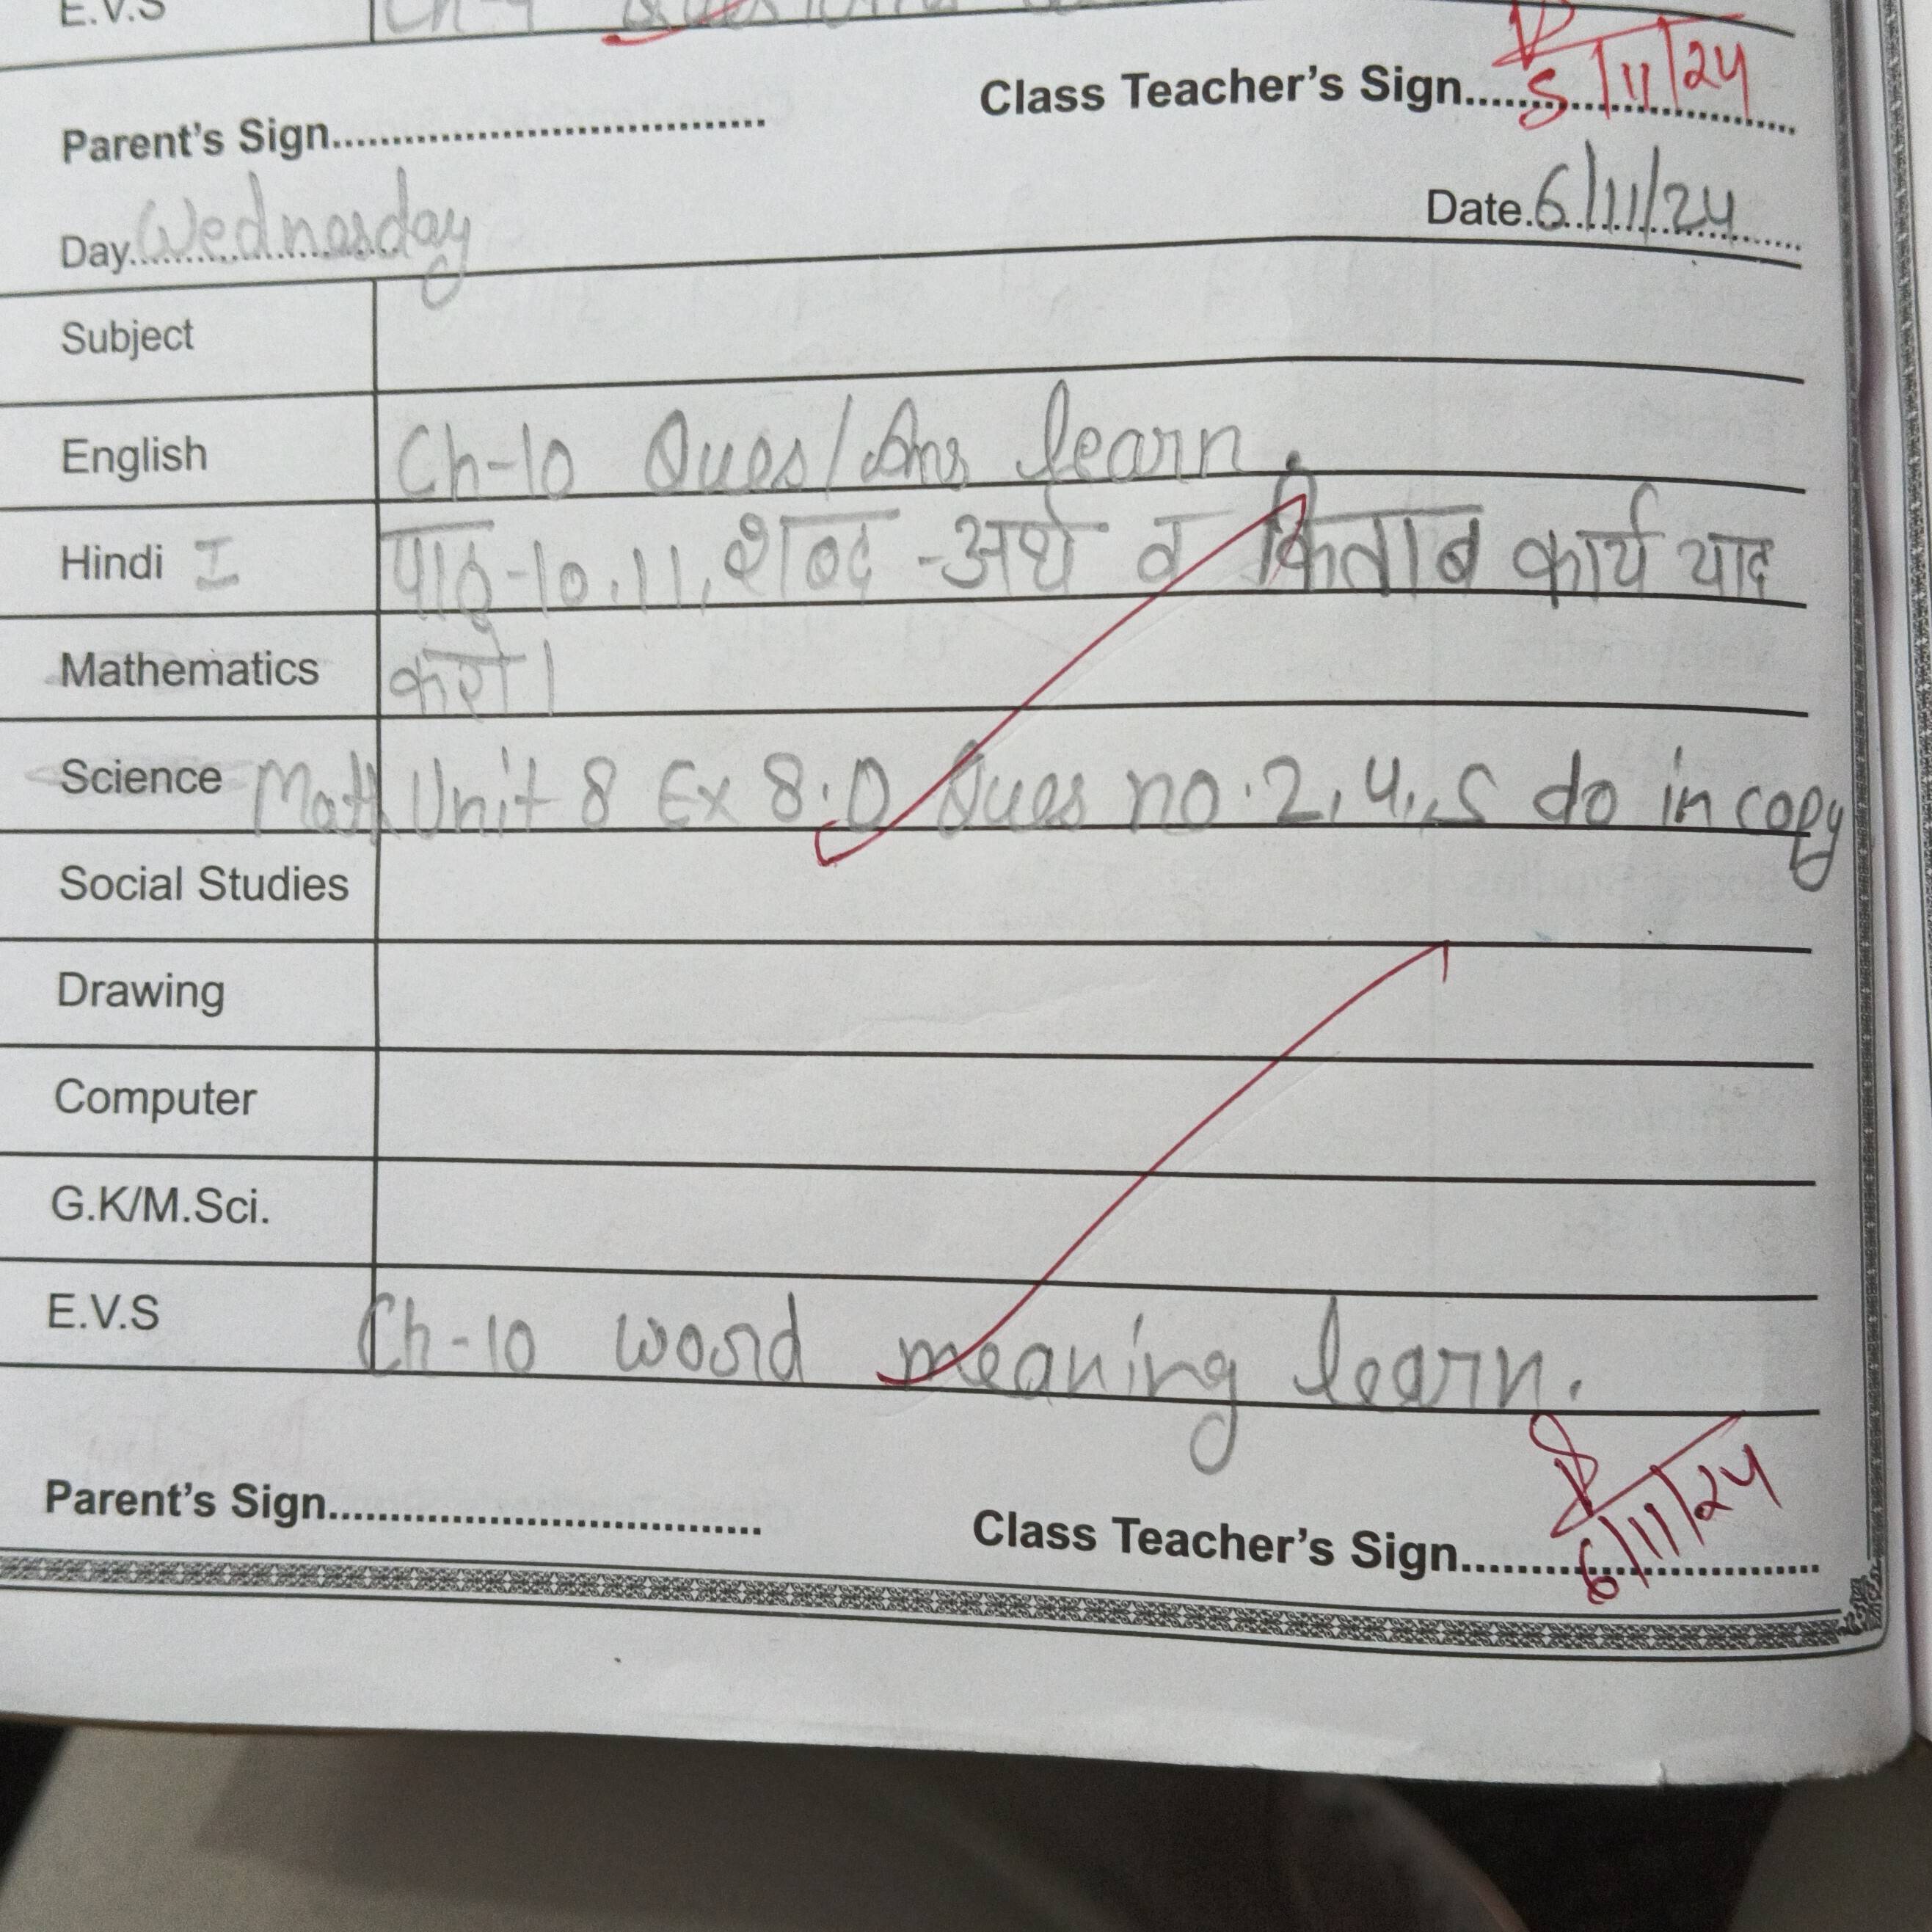 E.V.S Ch-
Class Teacher's Sign.................... 5/11/24
Parent's Sign....................................
Day Wednesday Date 6/11/24
Subject
English Ch-10 Ques/Ans learn.
Hindi I पाठ-10,11, शब्द -अर्थ व किताब कार्य याद
Mathematics करो।
Science Math Unit 8 Ex 8.D Ques no.2,4,5 do in copy
Social Studies
Drawing
Computer
G.K/M.Sci.
E.V.S Ch-10 word meaning learn.
Parent's Sign....................................
Class Teacher's Sign.................... 6/11/24